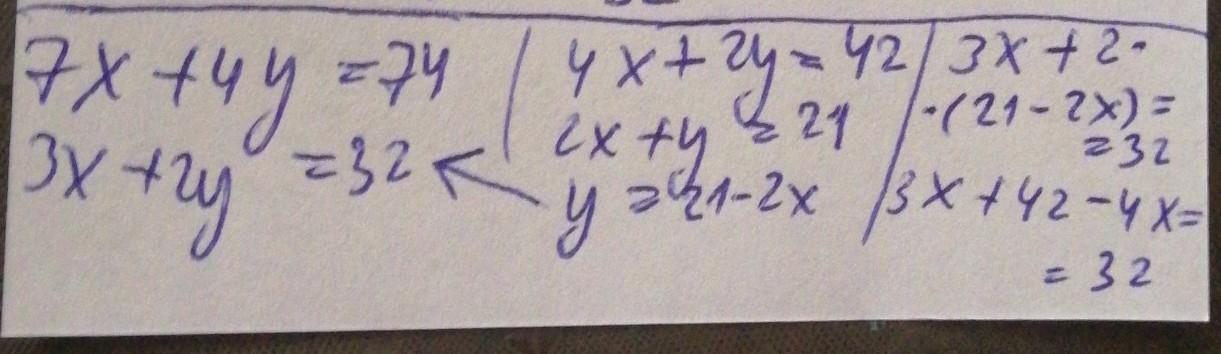 7x + 4y = 74
3x + 2y = 32
4x + 2y = 42
2x + y = 21
y = 21 - 2x
3x + 2·
·(21 - 2x) =
= 32
3x + 42 - 4x =
= 32